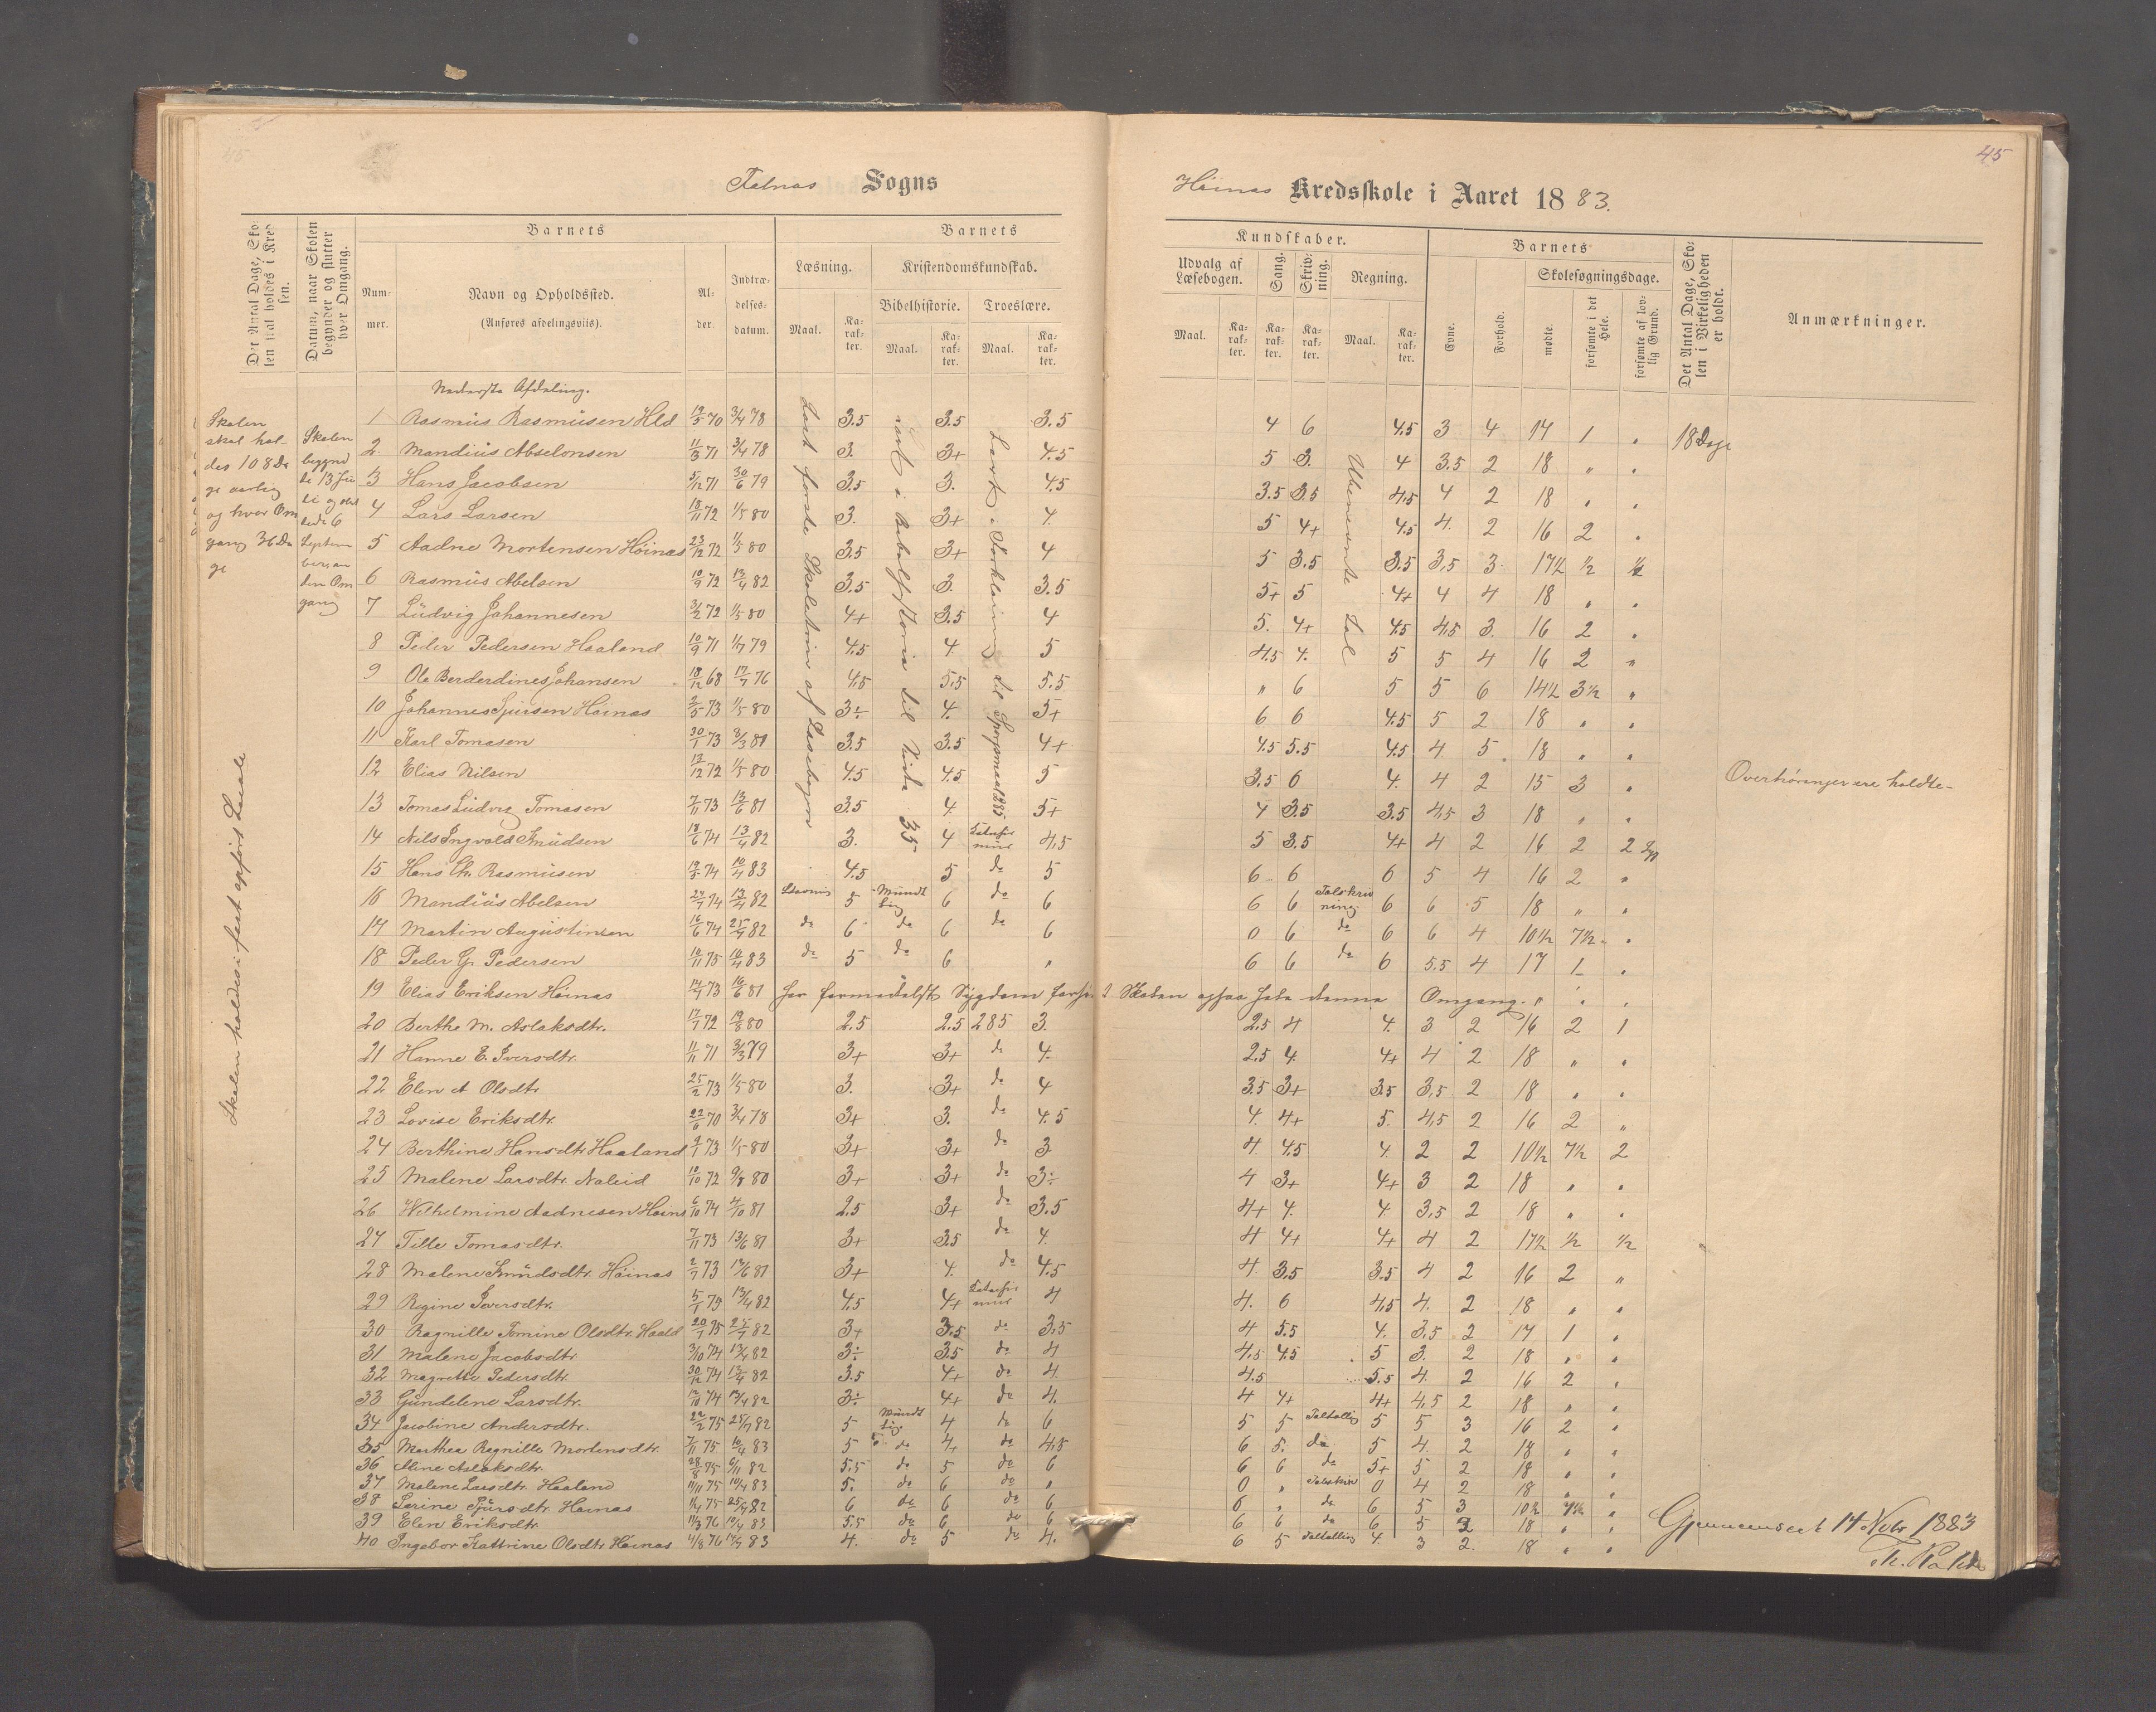 45
45
Falnæs Sogns
Høinæs Kredsskole i Aaret 1883.
Det Antal Dage, Skolen skal holdes i Kredsen.
Datum, naar Skolen begynder og slutter hver Omgang.
Barnets
Nummer.
Navn og Opholdssted.
(Anføres afdelingsviis).
Alder.
Indtrædelsesdatum.
Barnets
Læsning.
Maal.
Karakter.
Kristendomskundskab.
Bibelhistorie.
Troeslære.
Maal.
Karakter.
Maal.
Karakter.
Kundskaber.
Udvalg af Læsebogen.
Maal.
Karakter.
Sang.
Karakter.
Skrivning.
Karakter.
Regning.
Maal.
Karakter.
Barnets
Evne.
Forhold.
Skolesøgningsdage.
mødte.
forsømte i det Hele.
forsømte af lovlig Grund.
Det Antal Dage, Skolen i Virkeligheden er holdt.
Anmærkninger.
Nederste Afdeling.
Skolen
skal hol-
des 108 Da
ge aarlig
og hver Om
gang 36 Da
ge
Skolen
begynd
te 13 Ju
li og slut
tede 6
Septem
ber an
den Om
gang
Skolen holdes i fast opført Locale
1 Rasmus Rasmusen Hld 19/5 70 3/4 78 3.5 3.5 3.5 4 6 4.5 3 4 17 1 " 18 Dage
2 Mandius Abselonsen 11/3 71 3/4 78 3. 3+ 4.5 5 3. 4 3.5 2 18 " "
3 Hans Jacobsen 5/12 71 30/6 79 3.5 3. 4.5 3.5 3.5 4.5 4 2 18 " "
4 Lars Larsen 18/11 72 1/5 80 3. 3+ 4. 5 4+ 4.5 4. 2 16 2 "
5 Aadne Mortensen Høinæs 23/12 72 1/5 80 3.5 3+ 4 5 3.5 3.5 3,5 3 17½ ½ ½
6 Rasmus Abelsen 10/9 72 13/4 82 3.5 3. 3.5 5+ 5 4+ 4 4 18 " "
7 Ludvig Johannesen 3/2 72 1/5 80 4+ 3.5 4 5. 4+ 4.5 4,5 3. 16 2 "
8 Peder Pedersen Haaland 10/9 71 1/7 79 4.5 4. 5 4.5 4. 5 5 4 16 2 "
9 Ole Berderdines Johansen 18/12 68 17/7 76 4.5 5.5 5.5 " 6 5 5 6 14½ 3½ "
10 Johannes Sjursen Høinæs 2/5 73 1/5 80 3÷ 4. 5+ 6 6 4.5 5 2 18 " "
11 Karl Tomasen 30/1 73 3/3 81 3.5 3.5 4+ 4.5 5.5 4.5 4 5 18 " "
12 Elias Nilsen 12/12 72 1/5 80 4.5 4.5 5 3.5 6 4. 4 2 15 3 " Overhøringer ere holdte-
13 Tomas Ludvig Tomasen 7/11 73 13/6 81 3.5 4. 5+ 4 3.5 3.5 4,5 3 18 " "
14 Nils Ingvald Knudsen 18/6 74 13/4 82 3. 4 4,5 5 3.5 4+ 4 2 16 2 2
15 Hans Chr. Rasmusen 19/5 74 10/4 83 4.5 5 do 5 6 6 6 5 4 16 2 "
16 Mandius Abelsen 24/7 74 13/4 82 Stavning 5 Mundtlig 6 do 6 6 6 Talskrivning 6 6 5 18 " "
17 Martin Augustinsen 16/6 74 25/7 82 do 6 do 6 do 6 0 6 do 6 6 4 10½ 7½ "
18 Peder G. Pedersen 10/11 75 10/4 83 do 5 do 6 " 6 6 do 6 5.5 4 17 1 "
19 Elias Eriksen Høinæs 14/7 73 16/6 81 har formedelst Sygdom Skolen ogsaa hele denne Omgang. " " "
20 Berthe M. Aslaksdtr. 17/7 72 19/8 80 2.5 2.5 285 3. 2.5 4 4. 3 2 16 2 1
21 Hanne E. Iversdtr. 11/11 71 3/3 79 3+ 3+ do 4. 2.5 4. 4+ 4 2 18 " "
22 Elen A Olsdtr 25/2 73 1/5 80 3. 3+ do 4 3.5 3+ 3.5 3,5 2 18 " "
23 Lovise Eriksdtr. 22/6 70 3/4 78 3+ 3. do 4.5 4. 4+ 5. 4,5 2 16 2 "
24 Berthine Hansdtr. Haaland 9/1 73 1/5 80 3+ 3+ do 3 4. 4.5 4. 2 2 10½ 7½ 2
25 Malene Larsdtr. Naleid 10/10 72 9/8 80 3+ 3+ do 3÷ 4 3+ 4+ 3 2 18 " "
26 Wilhelmine Aadnesen Høinæs 6/10 74 4/10 81 2.5 3+ do 3.5 4+ 4. 4. 3,5 2 18 " "
27 Tille Tomasdtr. 7/11 73 13/6 81 3+ 3.5 do 4. 4 4+ 4+ 4 2 17½ ½ ½
28 Malene Knudsdtr. Høinæs 2/7 73 14/6 81 3+ 4. do 4.5 4. 3.5 3.5 4 2 16 2 "
29 Regine Iversdtr. 5/1 73 13/4 82 4.5 4+ 4 4. 6 4.5 4. 2 18 " "
30 Ragnille Tomine Olsdtr. Haald 20/1 75 25/7 82 3+ 3.5 do 3.5 4 5.5 4. 3,5 2 17 1 "
31 Malene Jacobsdtr. 3/10 74 13/4 82 3÷ 3.5 do 4 4.5 4.5 5 3. 2 18 " "
32 Magrethe Pedersdtr. 30/12 74 13/4 82 3.5 4+ do 4. 4.5 5.5 4. 2 16 2 "
33 Gundelene Larsdtr. 12/10 74 13/4 82 3÷ 4+ do 4. 4 4+ 4+ 4,5 2 18 " "
34 Jacobine Andersdtr. 22/2 75 25/7 82 5 Mundtlig 4 do 6 5 5 Taltællig 5 5 3 16 2 "
35 Marthea Ragnille Mortensdtr. 7/11 75 10/4 83 5 do 4. do 4.5 6 5. do 5 4. 2 18 " "
36 Aline Aslaksdtr. 28/8 75 6/11 82 5.5 do 5 do 6 6 6 do 5+ 5 2 18 " "
37 Malene Larsdtr. Haaland 11/11 75 10/4 83 5. do 6 do " 0 " Talskriv 0 4 2 18 " "
38 Serine Sjursdtr. Høinæs 1/4 75 25/9 82 6 do 6 do 6 6 " do 6 5 3 10½ 7½ "
39 Elen Eriksdtr. 11/3 76 10/4 83 5.5 do 6 do 6 6 6 do 6 5 2 18 " "
40 Ingebor Kattrine Olsdtr. Høinæs 4/8 76 17/7 83 4. do 5 do 4. 6 5 Taltællig 4. 3 2. 18 " "
Læst første Skoletrin af Læsebogen
lært i Bibelhistorie til Side 35
Lært i Forklaring til Spørgsmaal 285
Ubenævnte Tal
Gjennemseet 14 Novbr 1883